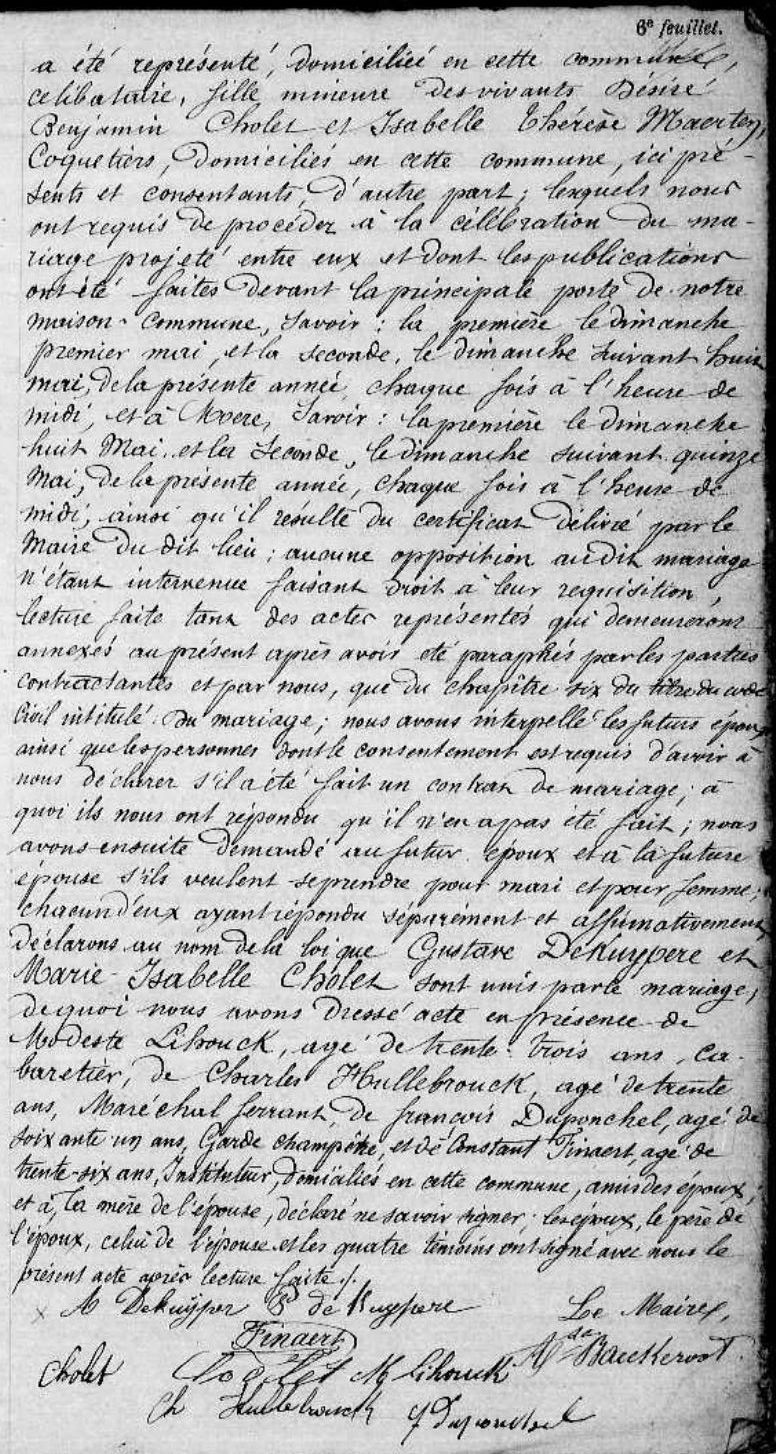 6e feuillet.
a été représenté, domiciliée en cette commune,
celibataire, fille mineure des vivants Désiré
Benjamin Cholet et Isabelle Thérèse Maerten,
Coquetiers, domiciliés en cette commune, ici pré-
sents et consentants, d'autre part; lesquels nous
ont requis de procéder à la célébration du ma-
riage projeté entre eux et dont les publications
ont été faites devant la principale porte de notre
maison commune, savoir: la première le dimanche
premier mai, et la seconde, le dimanche suivant huit
mai, de la présente année, chaque fois à l'heure de
midi, et à Moere, Savoir: la première le dimanche
huit Mai et la Seconde, le dimanche suivant quinze
Mai, de la présente année, chaque fois à l'heure de
midi, ainsi qu'il résulte du certificat délivré par le
Maire du dit lieu; aucune opposition audit mariage
n'étant intervenue faisant droit à leur requisition,
lecture faite tant des actes représentés qui demeureront
annexés au présent après avoir été paraphés par les parties
contractantes et par nous, que du chapitre six du titre du code
Civil intitulé: Du mariage; nous avons interpellé les futurs époux
ainsi que les personnes dont le consentement est requis d'avoir à
nous déclarer s'il a été fait un contrat de mariage; à
quoi ils nous ont répondu qu'il n'en a pas été fait; nous
avons ensuite demandé au futur époux et à la future
épouse s'ils veulent se prendre pour mari et pour femme;
chacun d'eux ayant répondu séparément et affirmativement,
déclarons au nom de la loi que Gustave DeKuypere et
Marie-Isabelle Cholet sont unis par le mariage;
de quoi nous avons dressé acte en présence de
Modeste Lihouck, agé de trente-trois ans, Ca-
baretier, de Charles Hullebrouck, agé de trente
ans, Maréchal ferrant, de françois Duponchel, agé de
soixante un ans, Garde champêtre, et de Constant Finaert, agé de
trente-six ans, Instituteur, domiciliés en cette commune, amis des époux;
et a, la mère de l'épouse, déclaré ne savoir signer; les époux, le père de
l'époux, celui de l'épouse et les quatre témoins ont signé avec nous le
présent acte après lecture faite./.
A DeKuyper de Kuypere Le Maire,
Finaert
Cholet Cholet M Lihouck
Ch Hullebrouck f Duponchel